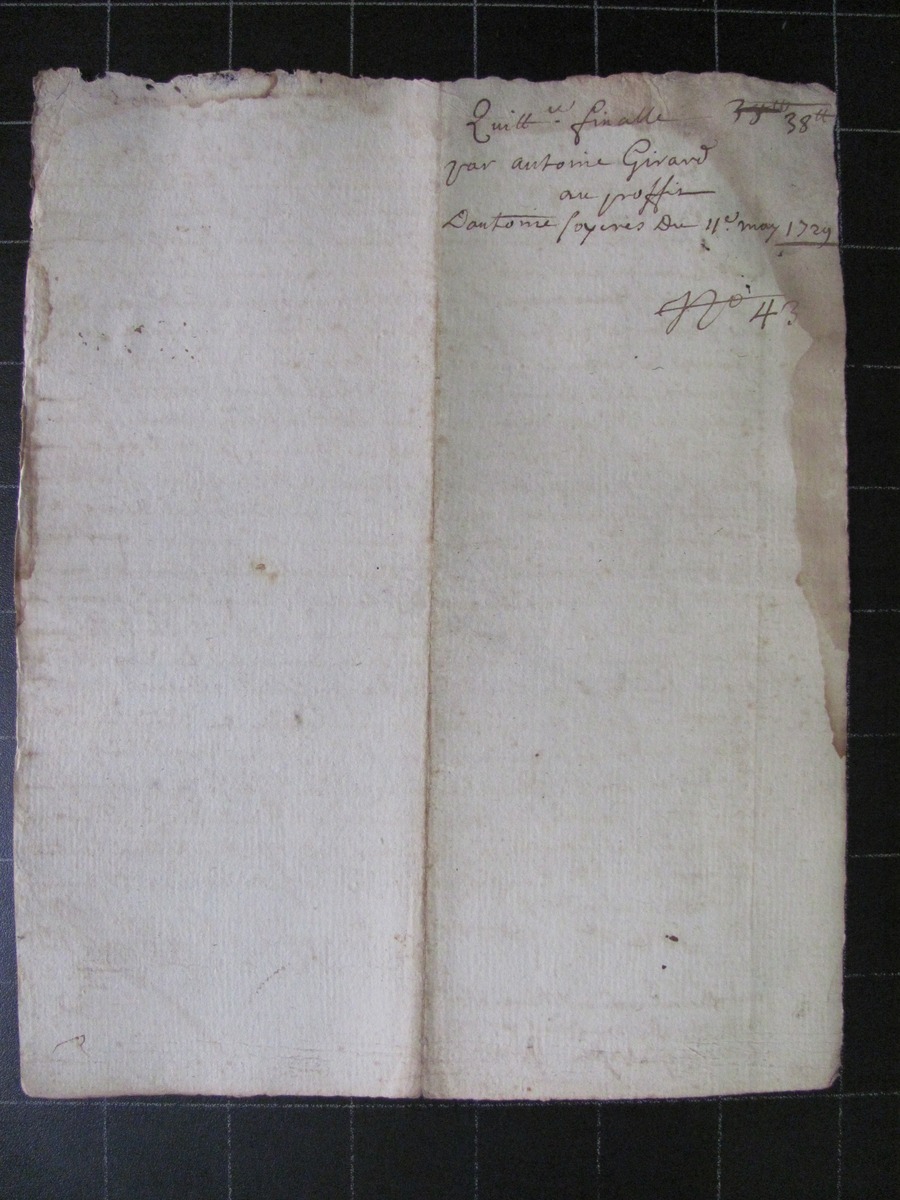 Quitt.ce finalle 38tt
par antoine Girard
au proffit
Dantoine soyeres Du 4e may 1729
No 43